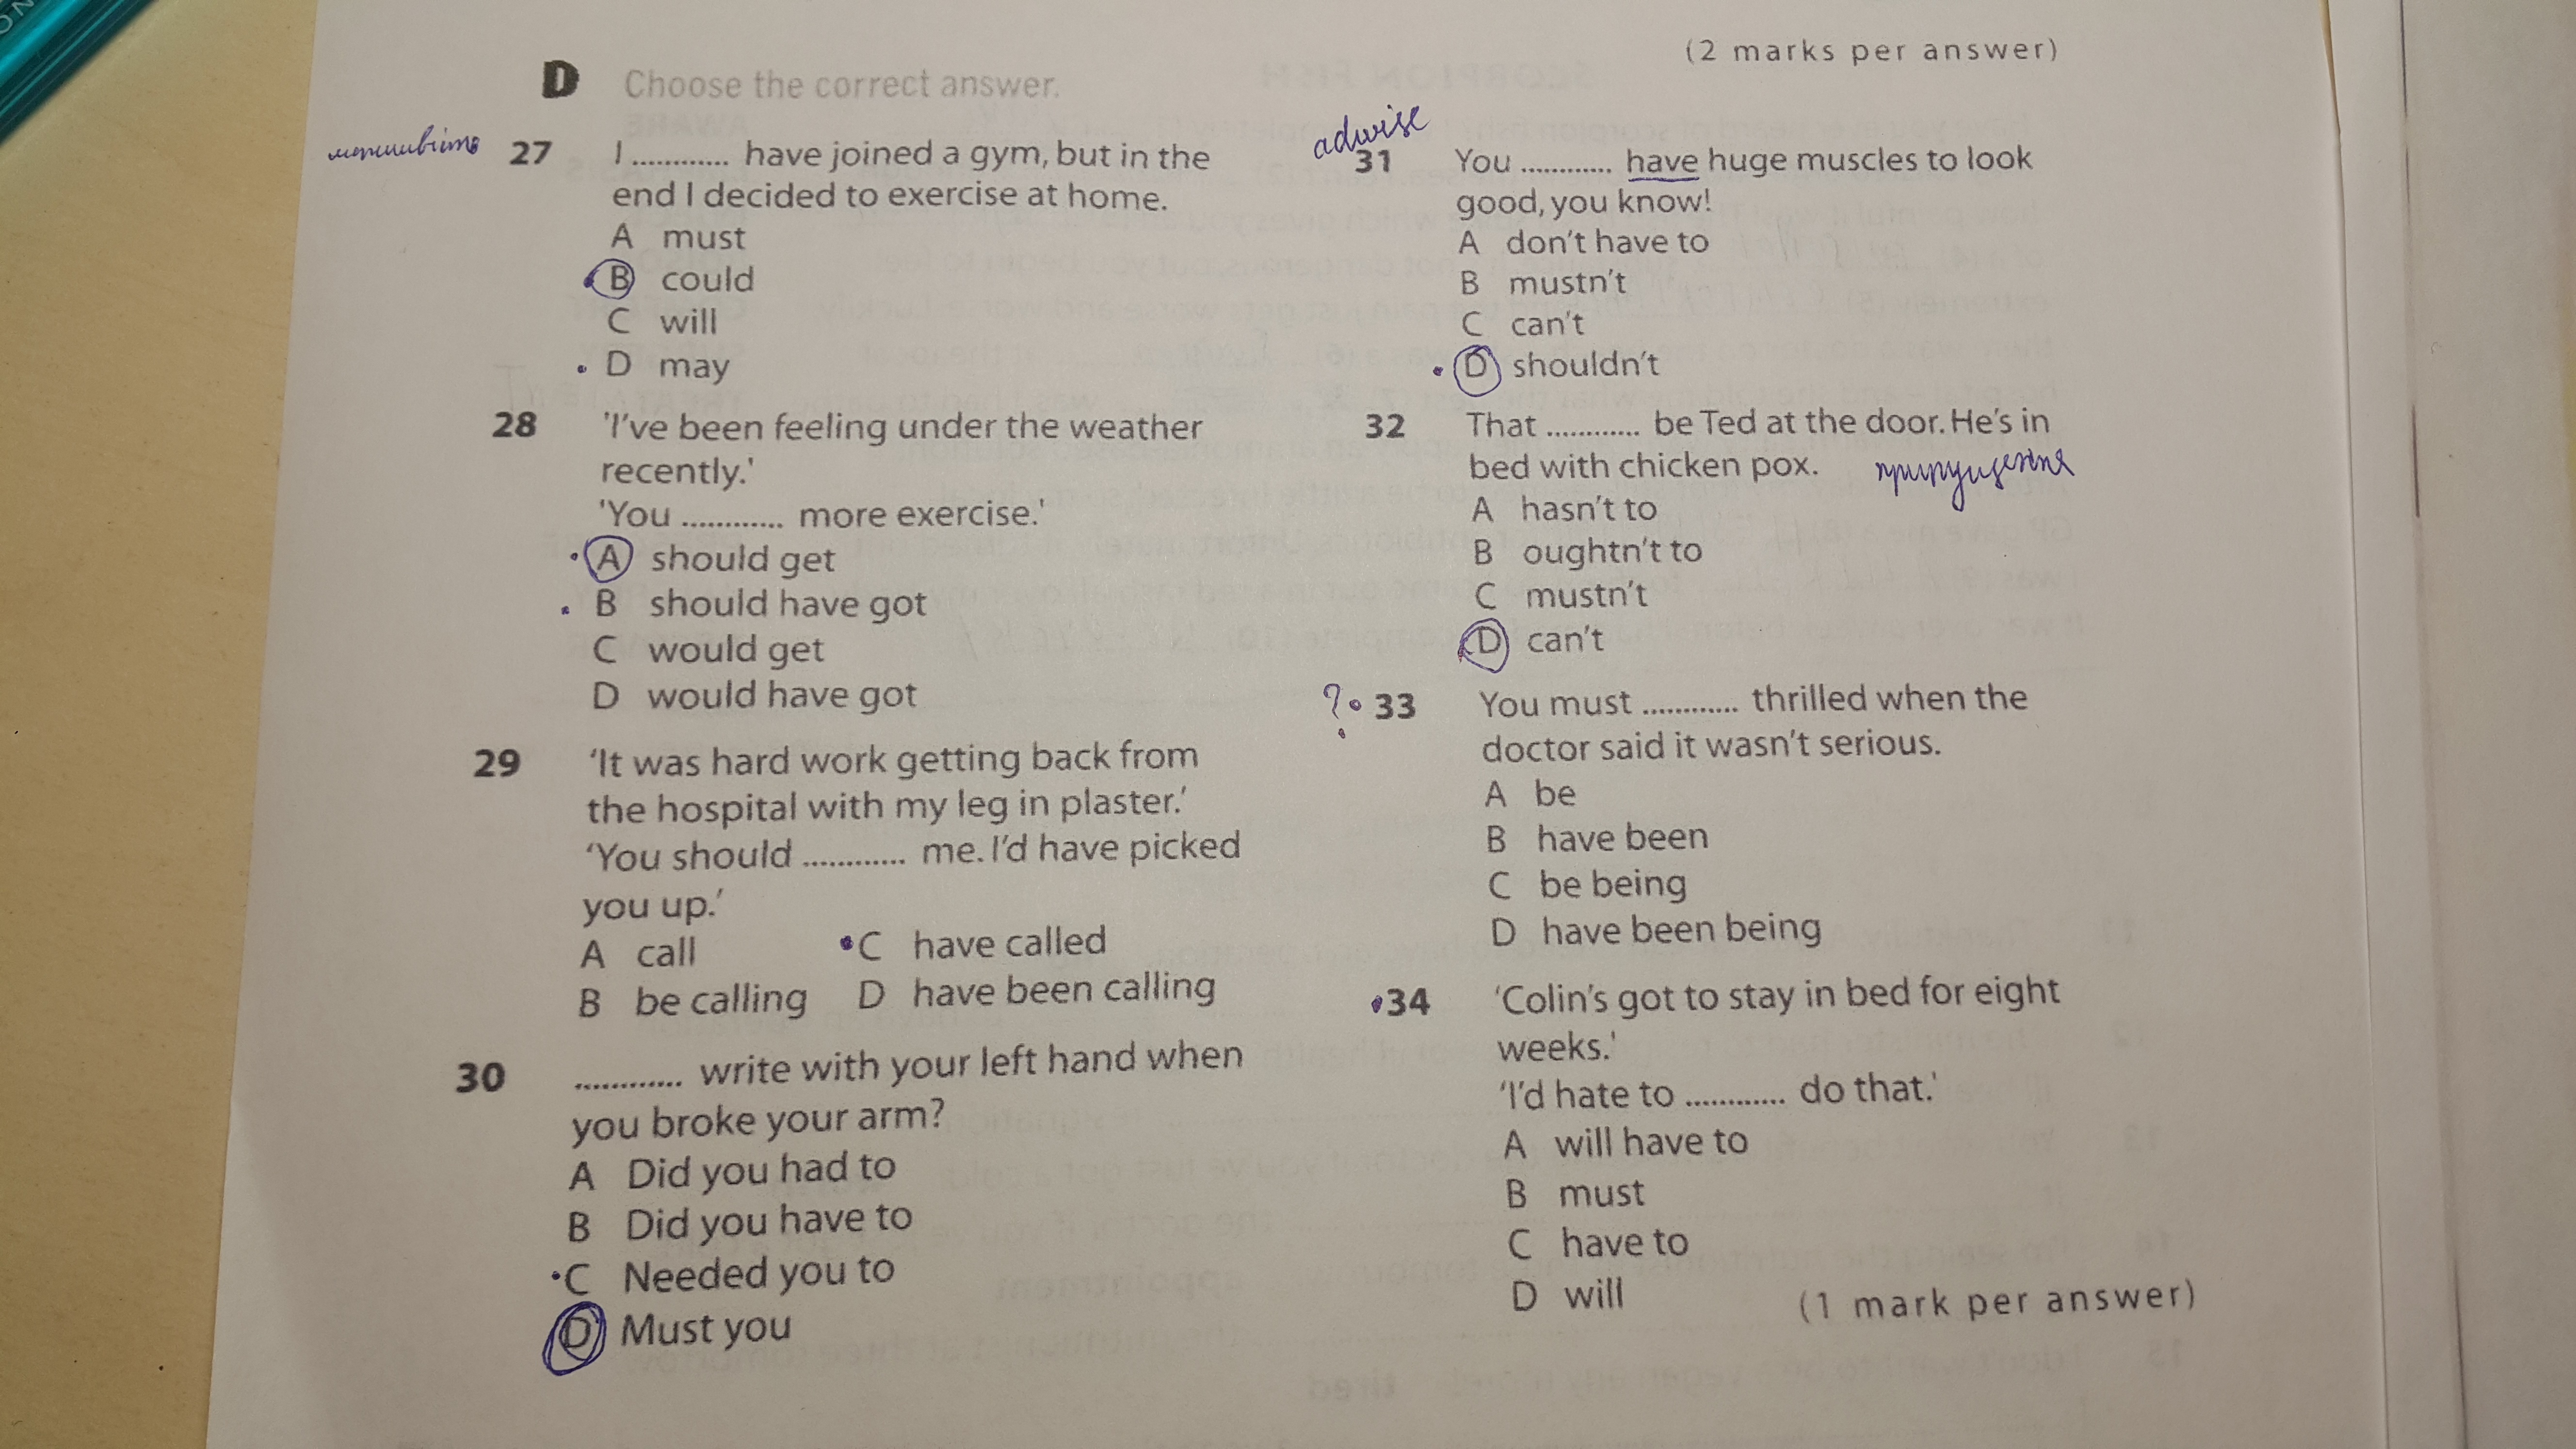 (2 marks per answer)
D Choose the correct answer.
27 I ............ have joined a gym, but in the
end I decided to exercise at home.
A must
B could
C will
D may
28 'I've been feeling under the weather
recently.'
'You ............ more exercise.'
A should get
B should have got
C would get
D would have got
29 'It was hard work getting back from
the hospital with my leg in plaster.'
'You should ............ me. I'd have picked
you up.'
A call C have called
B be calling D have been calling
30 ............ write with your left hand when
you broke your arm?
A Did you had to
B Did you have to
C Needed you to
D Must you
adwise
31 You ............ have huge muscles to look
good, you know!
A don't have to
B mustn't
C can't
D shouldn't
32 That ............ be Ted at the door. He's in
bed with chicken pox.
A hasn't to
B oughtn't to
C mustn't
D can't
? 33 You must ............ thrilled when the
doctor said it wasn't serious.
A be
B have been
C be being
D have been being
34 'Colin's got to stay in bed for eight
weeks.'
'I'd hate to ............ do that.'
A will have to
B must
C have to
D will
(1 mark per answer)